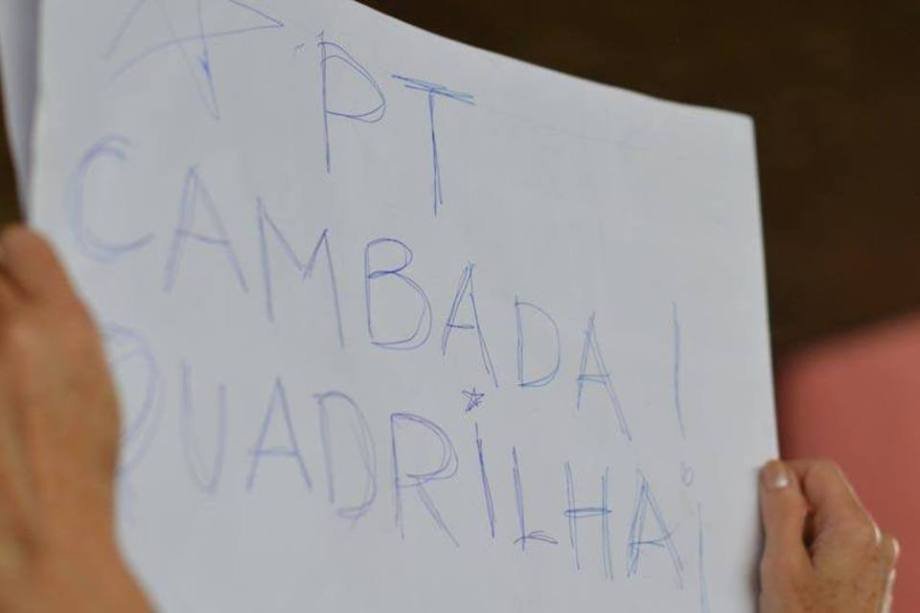 PT
CAMBADA!
QUADRILHA¡